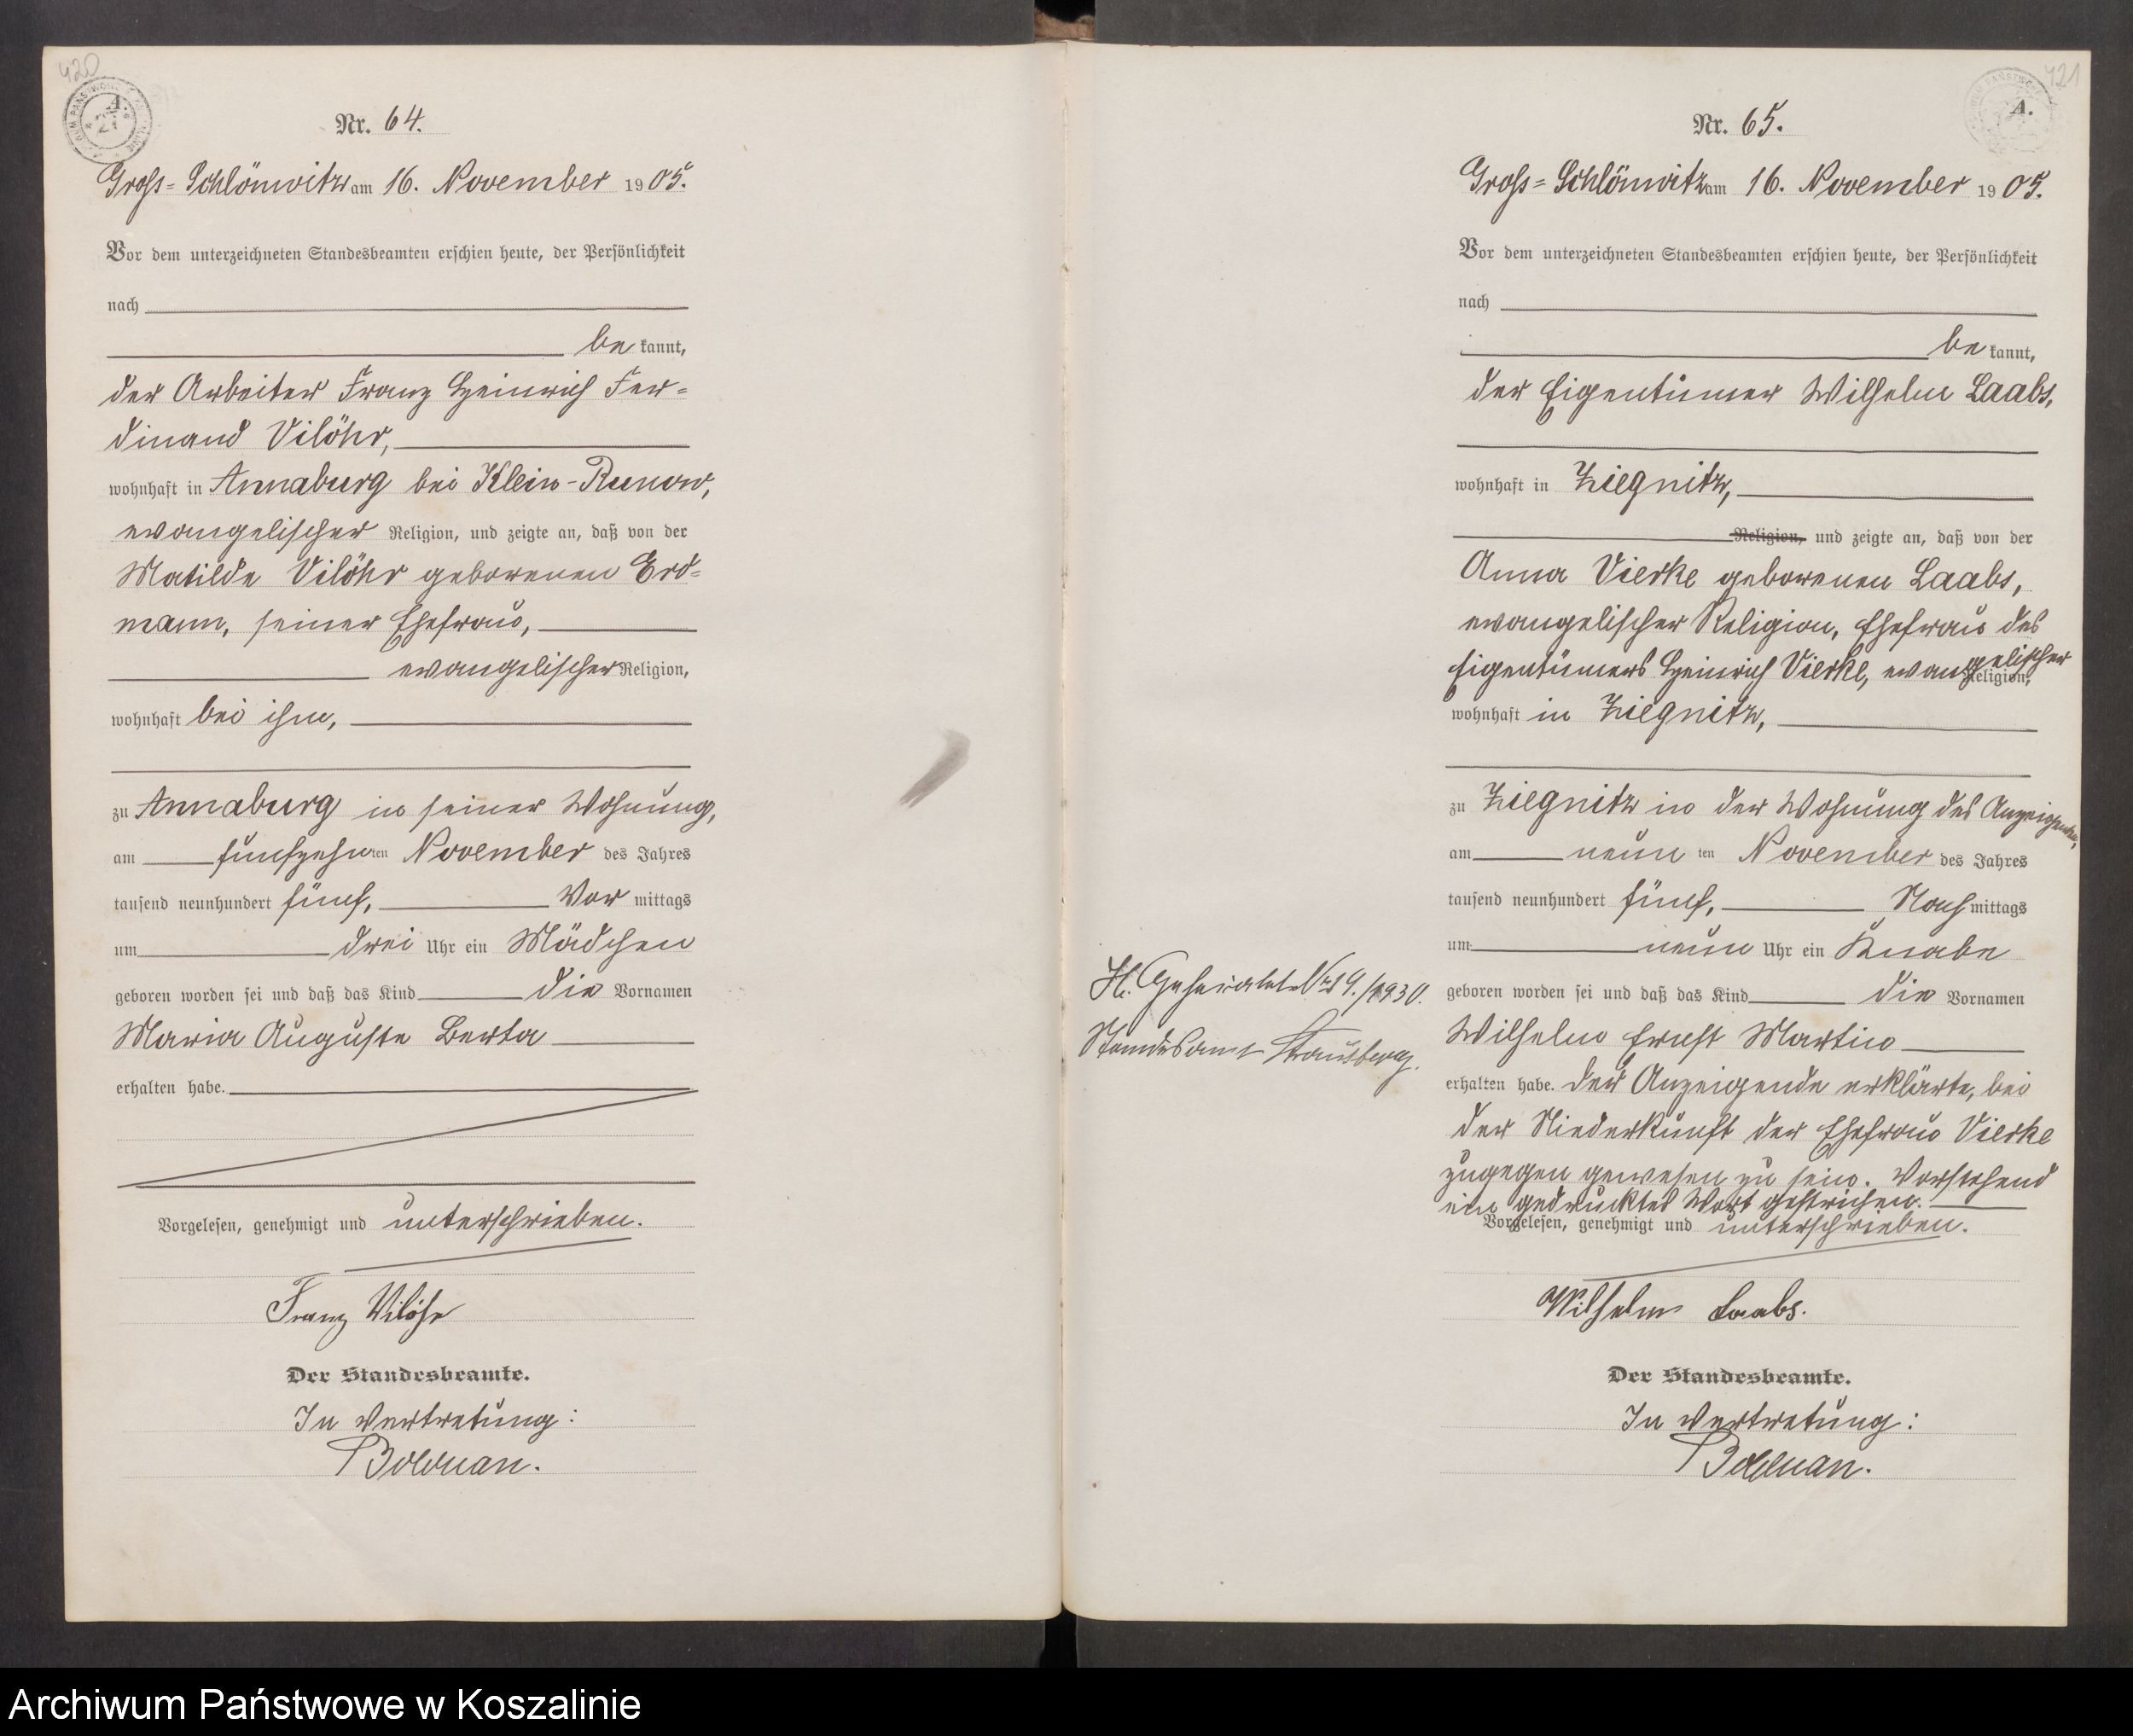 420
A.
Nr. 64.
Gross-Schlönwitz am 16. November 1905.
Vor dem unterzeichneten Standesbeamten erschien heute, der Persönlichkeit
nach
be kannt,
der Arbeiter Franz Heinrich Fer-
dinand Vilöhr,
wohnhaft in Annaburg bei Klein-Runow,
evangelischer Religion, und zeigte an, daß von der
Matilde Vilöhr geborenen Erd-
mann, seiner Ehefrau,
evangelischer Religion,
wohnhaft bei ihm,
zu Annaburg in seiner Wohnung,
am fünfzehnten November des Jahres
tausend neunhundert fünf, Vor mittags
um drei Uhr ein Mädchen
geboren worden sei und daß das Kind die Vornamen
Maria Auguste Berta
erhalten habe.
Vorgelesen, genehmigt und unterschrieben.
Franz Vilöhr
Der Standesbeamte.
In Vertretung:
Bolduan.
421
A.
Nr. 65.
Gross-Schlönwitz am 16. November 1905.
Vor dem unterzeichneten Standesbeamten erschien heute, der Persönlichkeit
nach
be kannt,
der Eigentümer Wilhelm Laabs,
wohnhaft in Ziegnitz,
Religion, und zeigte an, daß von der
Anna Vierke geborenen Laabs,
evangelischer Religion, Ehefrau des
Eigentümers Heinrich Vierke, evangelischer
Religion,
wohnhaft in Ziegnitz,
zu Ziegnitz in der Wohnung des Anzeigenden,
am neun ten November des Jahres
tausend neunhundert fünf, Nach mittags
um neun Uhr ein Knabe
geboren worden sei und daß das Kind die Vornamen
Wilhelm Ernst Martin
erhalten habe. Der Anzeigende erklärte, bei
der Niederkunft der Ehefrau Vierke
zugegen gewesen zu sein. Vorstehend
ein gedrucktes Wort gestrichen.
Vorgelesen, genehmigt und unterschrieben.
Wilhelm Laabs.
Der Standesbeamte.
In Vertretung:
Bolduan.
Geheiratet Nr 19./1930.
Standesamt Strausberg.
Archiwum Państwowe w Koszalinie